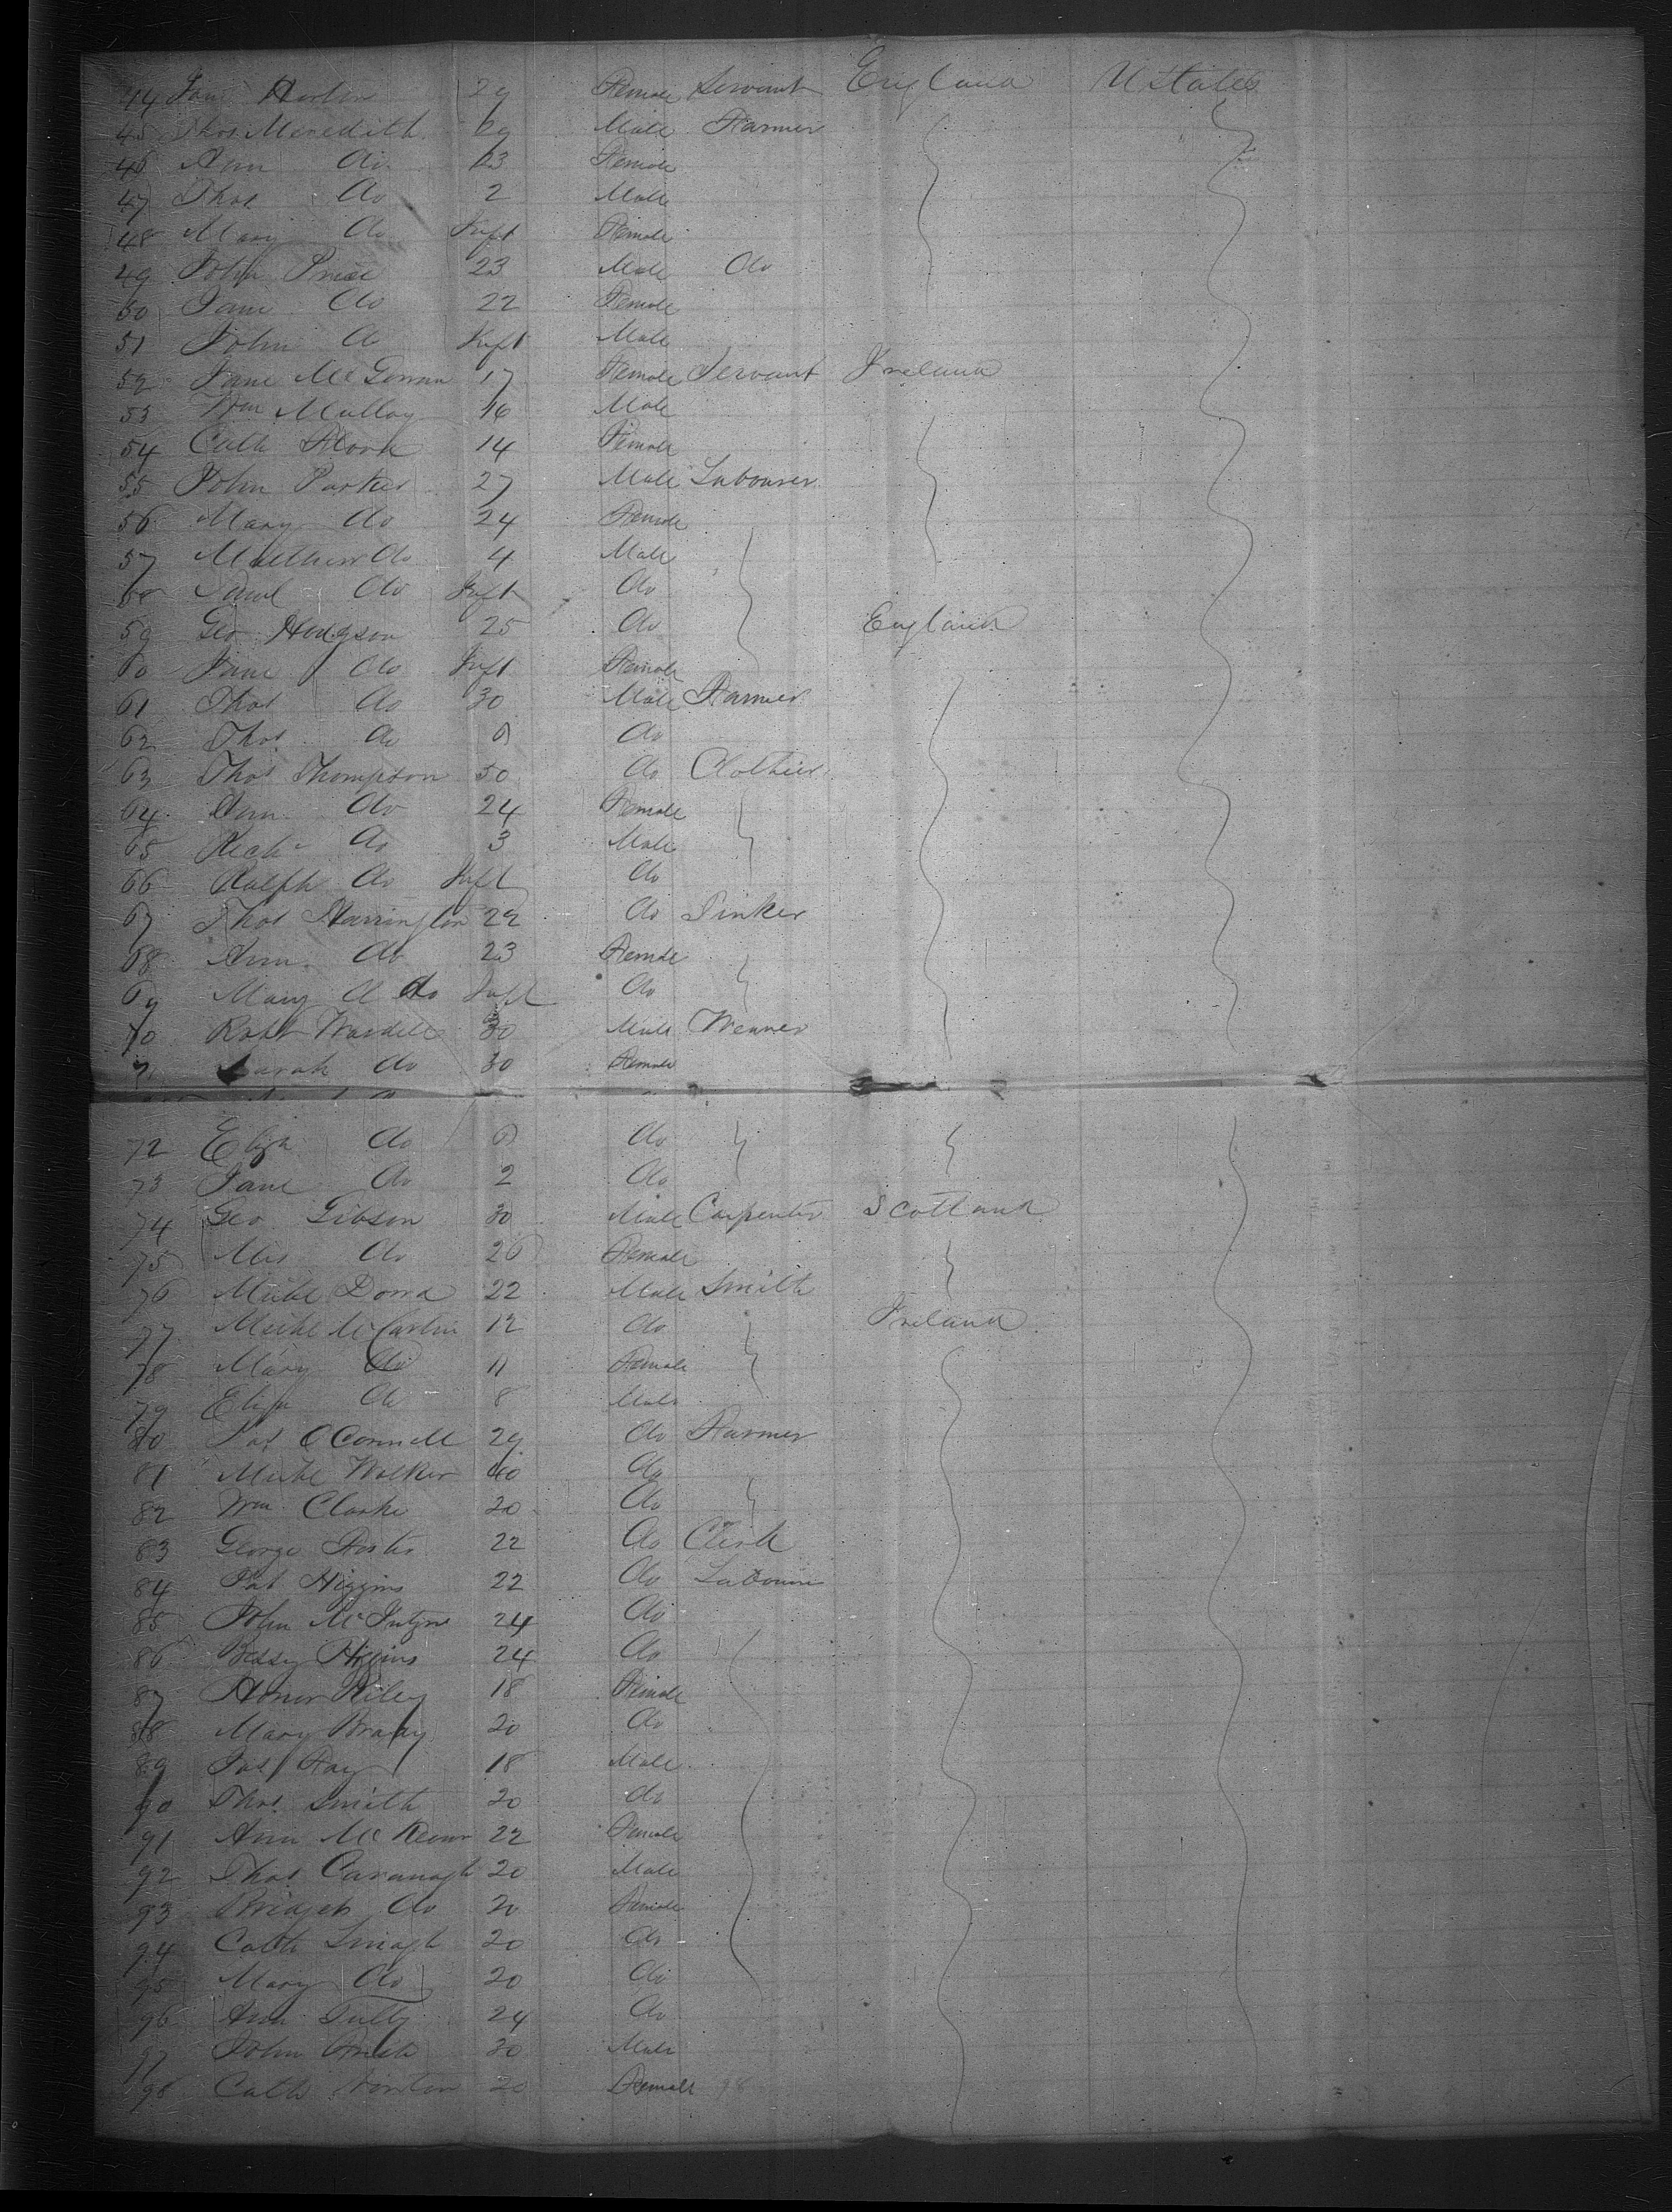 44 Jane Horton 29 Female Servant England U States
45 Thos Meredith 69 Male Farmer
46 Ann do 63 Female
47 Thos do 2 Male
48 Mary do Inft Female
49 John Price 23 Male do
50 Jane do 22 Female
51 John do Inft Male
52 Jane McGowan 17 Female Servant Ireland
53 Wm Mulloy 16 Male
54 Cath 14 Female
55 John Parker 27 Male Labourer
56 Mary do 24 Female
57 Matthew do 4 Male
58 Saml do Inft do
59 Geo Hodgson 25 do England
60 Jane do Inft Female
61 Thos do 30 Male Farmer
62 Thos do 6 do
63 Thos Thompson 50 do Clothier
64 Ann do 24 Female
65 Richd do 3 Male
66 Ralph do Inft do
67 Thos Harrington 22 do Tinker
68 Ann do 23 Female
69 Mary A do Inft do
70 Robt Wardell 30 Male Weaver
71 Sarah do 30 Female
72 Eliza do 6 do
73 Jane do 2 do
74 Geo Gibson 30 Male Carpenter Scotland
75 Mrs do 26 Female
76 Michl Dowd 22 Male Smith
77 Michl 12 do Ireland
78 Mary do 11 Female
79 Eliza do 8 Male
80 Pat O'Connell 29 do Farmer
81 Michl Walker 40 do
82 Wm Clarke 20 do
83 George Foster 22 do Clerk
84 Pat Higgins 22 do Labourer
85 John McIntyre 24 do
86 Bessy Higgins 24 do
87 Honor Riley 18 Female
88 Mary Brady 20 do
89 Jas 18 Male
90 Thos Smith 20 do
91 Ann McKeown 22 Female
92 Thos Cavanagh 20 Male
93 Bridget do 20 Female
94 Cath 20 do
95 Mary do 20 do
96 Ann Tully 24 do
97 John 30 Male
98 Cath 20 Female 98